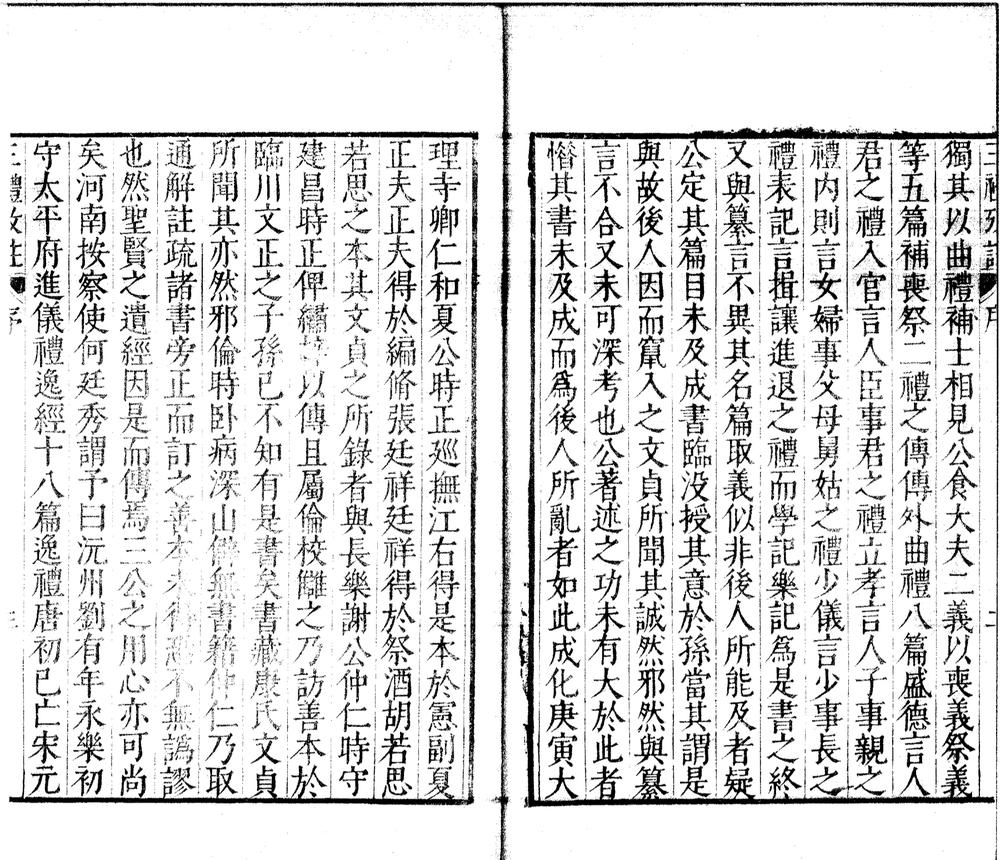 獨其以曲禮補士相見公食大夫二義以喪義祭義
等五篇補喪祭二禮之傳傳外曲禮八篇盛德言人
君之禮入官言人臣事君之禮立孝言人子事親之
禮内則言女婦事父母舅姑之禮少儀言少事長之
禮表記言揖讓進退之禮而學記樂記爲是書之終
又與纂言不異其名篇取義似非後人所能及者疑
公定其篇目未及成書臨没授其意於孫當其謂是
與故後人因而竄入之文貞所聞其誠然邪然與纂
言不合又未可深考也公著述之功未有大於此者
惜其書未及成而爲後人所亂者如此成化庚寅大
理寺卿仁和夏公時正廵撫江右得是本於憲副夏
正夫正夫得於編脩張廷祥廷祥得於祭酒胡若思
若思之本其文貞之所錄者與長樂謝公仲仁時守
建昌時正俾繡梓以傳且屬倫校讎之乃訪善本於
臨川文正之子孫已不知有是書矣書藏康氏文貞
所聞其亦然邪倫時卧病深山僻無書籍仲仁乃取
通解註疏諸書旁正而訂之善本未得不無譌謬
也然聖賢之遺經因是而傳焉三公之用心亦可尚
矣河南按察使何廷秀謂予曰沅州劉有年永樂初
守太平府進儀禮逸經十八篇逸禮唐初已亡宋元
三禮攷註 序